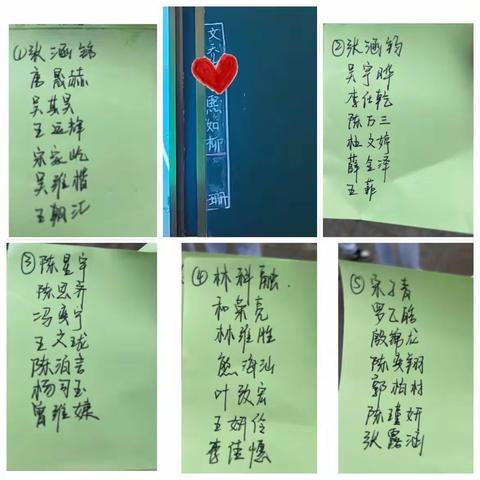 ①张涵铭
唐晟赫
吴其昊
王运辉
宋家屹
吴雅楷
王翱汇
文乔
熙如柳
珊
②张涵钧
吴宇晔
李仕乾
陈万三
杜文婷
薛全泽
王菲
③陈星宇
陈思乔
冯奕宁
王文珑
陈泊言
杨可玉
曾雅婕
④林科融
和梁亮
林雅胜
熊海汕
叶致宏
王妍伶
李佳慷
⑤宋子青
罗乙皓
殷锦龙
陈奕翔
郭柏村
陈瑾妍
张露涵